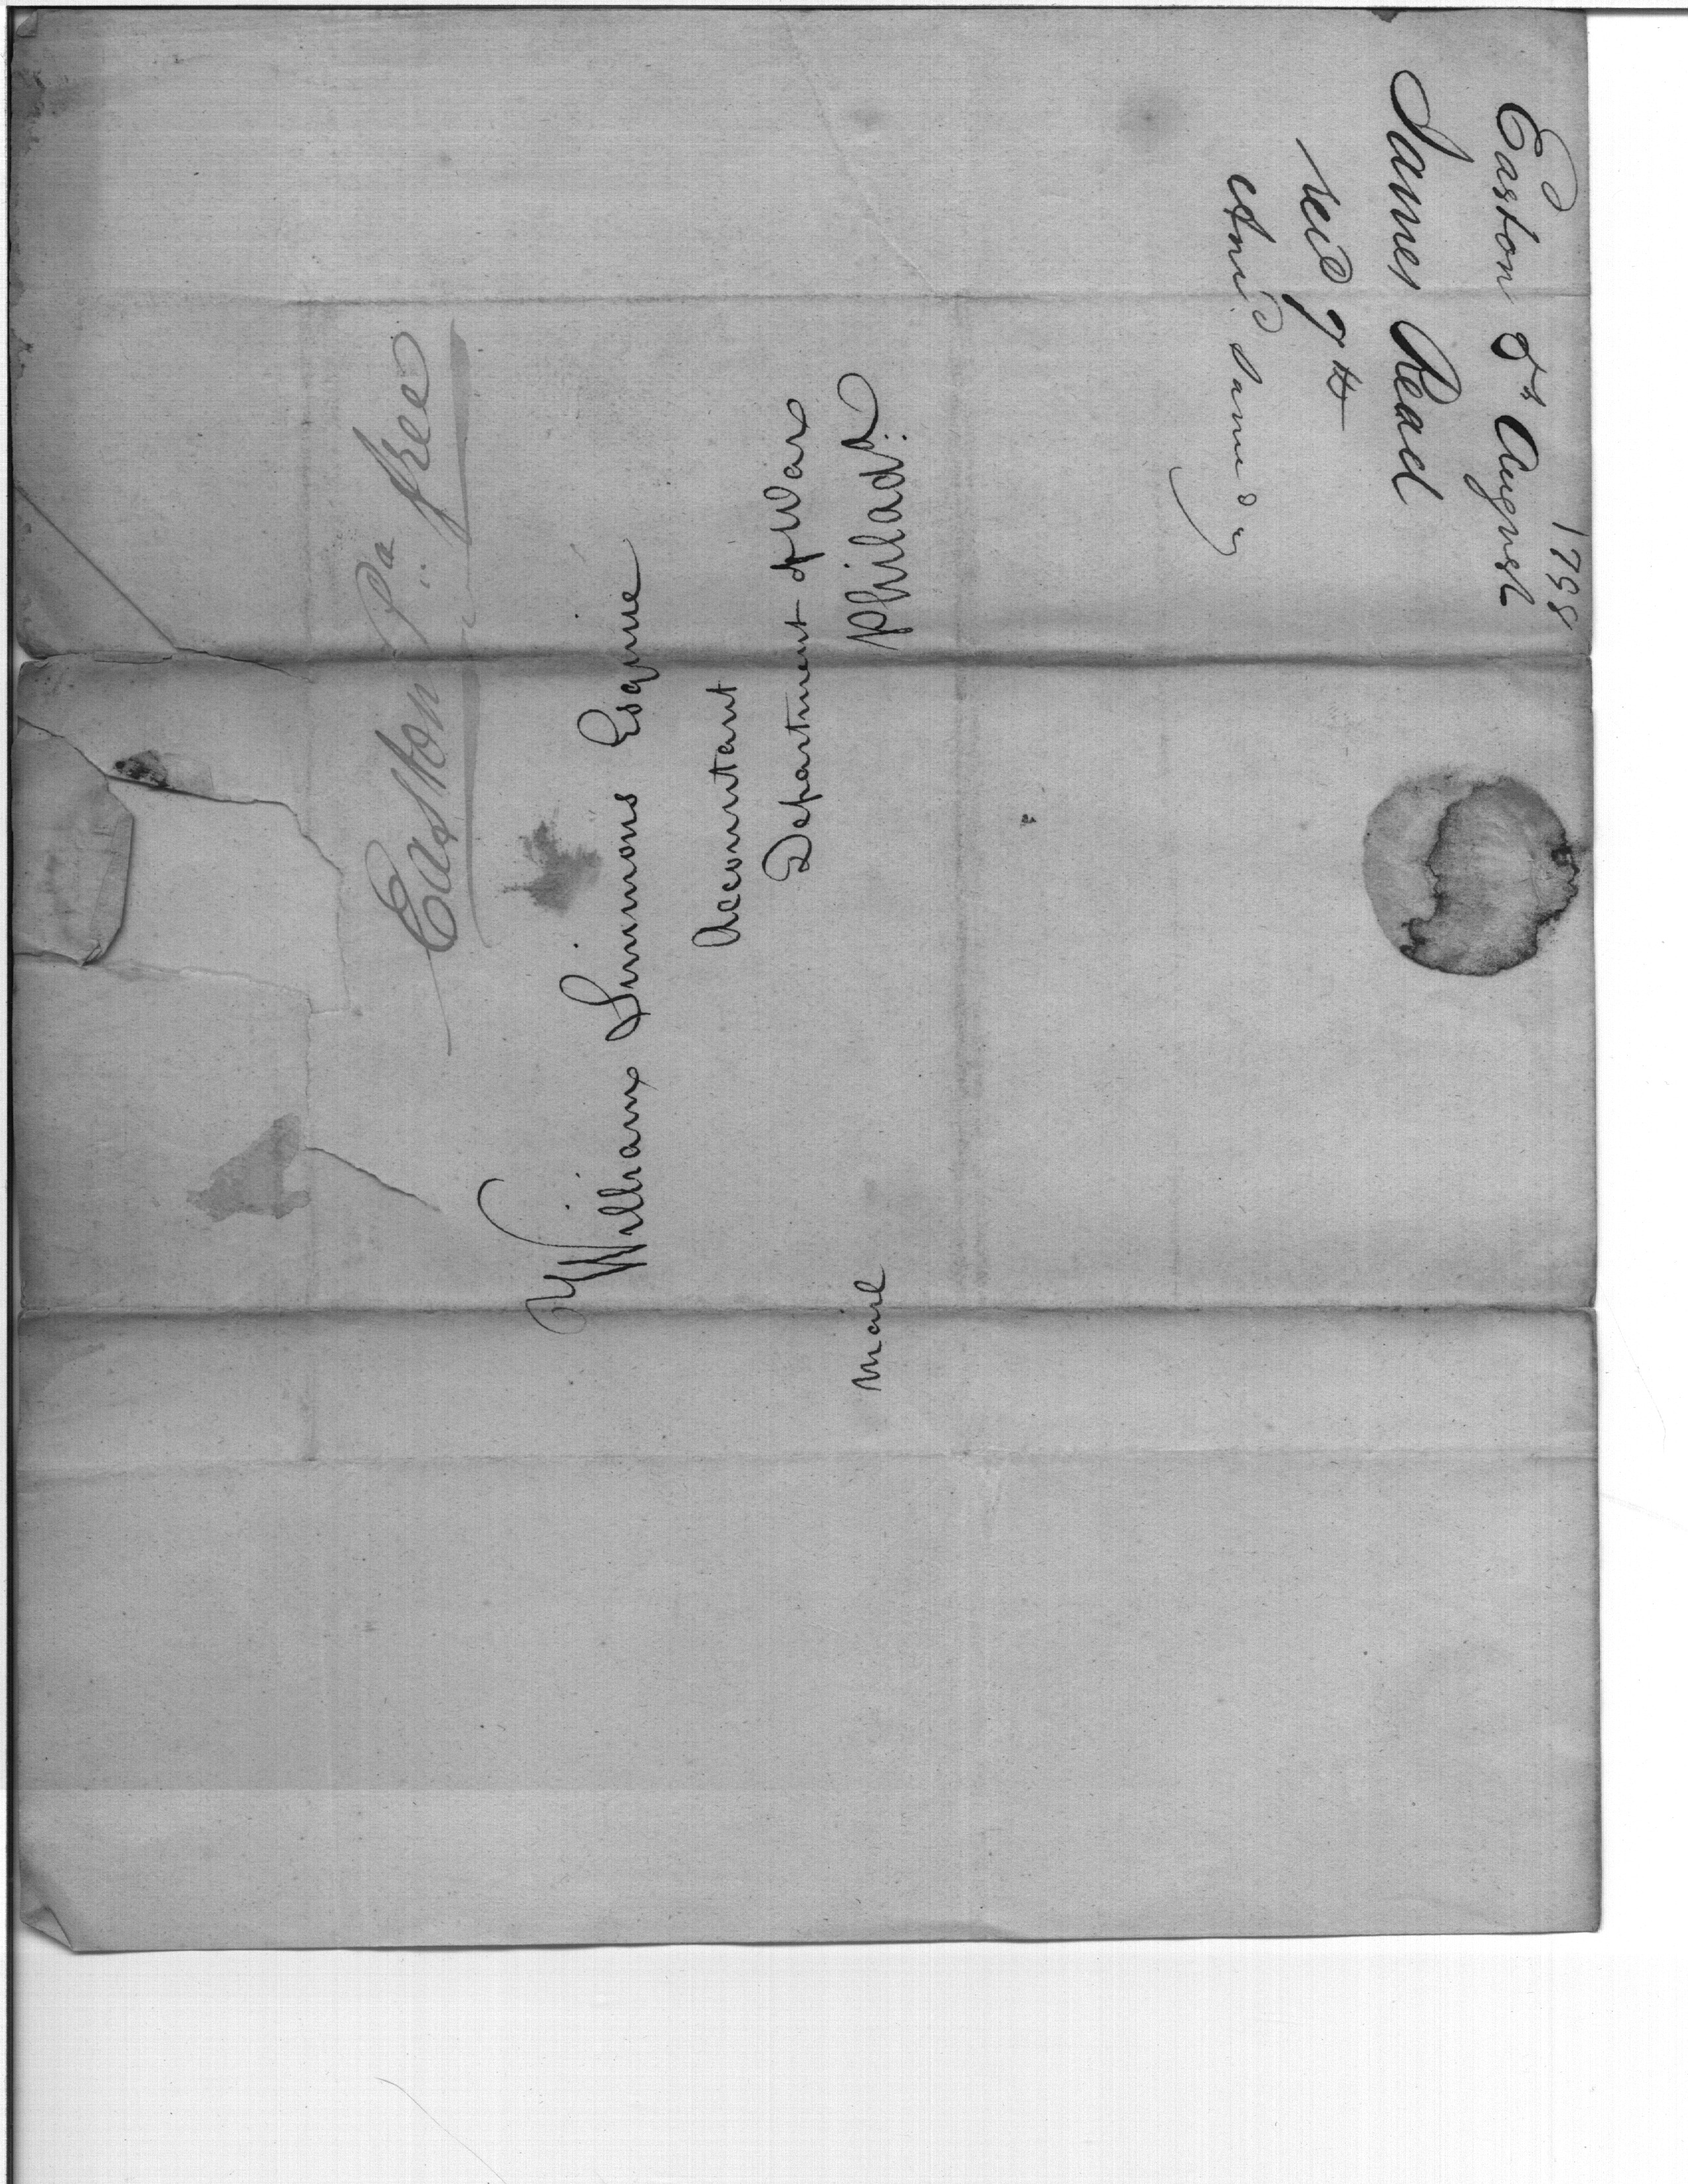 Easton Pa. free
William Simmons Esquire
Accountant
Department of War
Philada.
Mail
Easton 8th August
1798
James Read
Recd 9th
Ansd same day